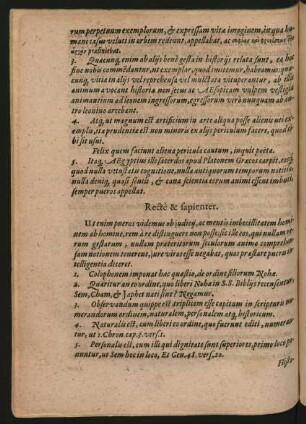 rum perpetuum exemplorum, & expressam vitæ imaginem, in qua ho-
mines tanquam in orbem redeunt, appellabat, ac
3. Quæcunq, enim ab aliis benè gesta in historijs relata sunt, ea hoc
fine nobis commendantur, ut exemplar, quod imitemur, habeamus: quæ-
cunq, vitia in alijs vel reprehensa vel mulctata vituperantur, ab illis
animum avocant historiæ non secus ac Aesopicam vulpem vestigia
animantium ad leonem ingressorum, egressorum verò nunquam ab an-
tro leonino arcebant.
4. Atq, ut magnum est artificium in arte aliqua posse alienis uti ex-
emplis, ita prudentia est non minor ex alijs periculum facere, quod si-
bi sit usui.
Felix quem faciunt aliena pericula cautum, inquit poëta.
5. Itaq, Aegyptius ille sacerdos apud Platonem Græcos carpit,
quod nulla vetusta eis cognitio, nulla antiquorum temporum notitia,
nulla deniq, quasi senili, & cana scientia eorum animi essent imbuti,
semper pueros appellat.
Rectè & sapienter.
Ut enim pueros videmus ob judicij, ac mentis imbecillitatem homi-
nem ab homine, rem à re distinguere non posse: sic ille eos, qui nullam re-
rum gestarum, nullam præteritorum seculorum animo comprehen-
sam notionem tenerent, jure viresq; negabat, quas præstare pueri in-
telligentia diceret.
1. Colophonem imponat hæc quæstio, de ordine filiorum Nohæ.
2. Quæritur an eo ordine, quo liberi Nohæ in S.S. Biblijs recensentur,
Sem, Cham, & Japhet nati sint? Negamus.
3. Observandum quippe est triplicem esse capitum in scriptura nu-
merandorum ordinem, naturalem, personalem atq, historicum.
4. Naturalis est, cum liberi eo ordine, quo fuerunt editi, numeran-
tur, ut 1. Chron. cap. 3. vers. 1.
5. Personalis est, cum illi qui dignitate sunt superiores, primo loco po-
nuntur, ut Sem hoc in loco, Et Gen. 48. vers. 20.
Histor